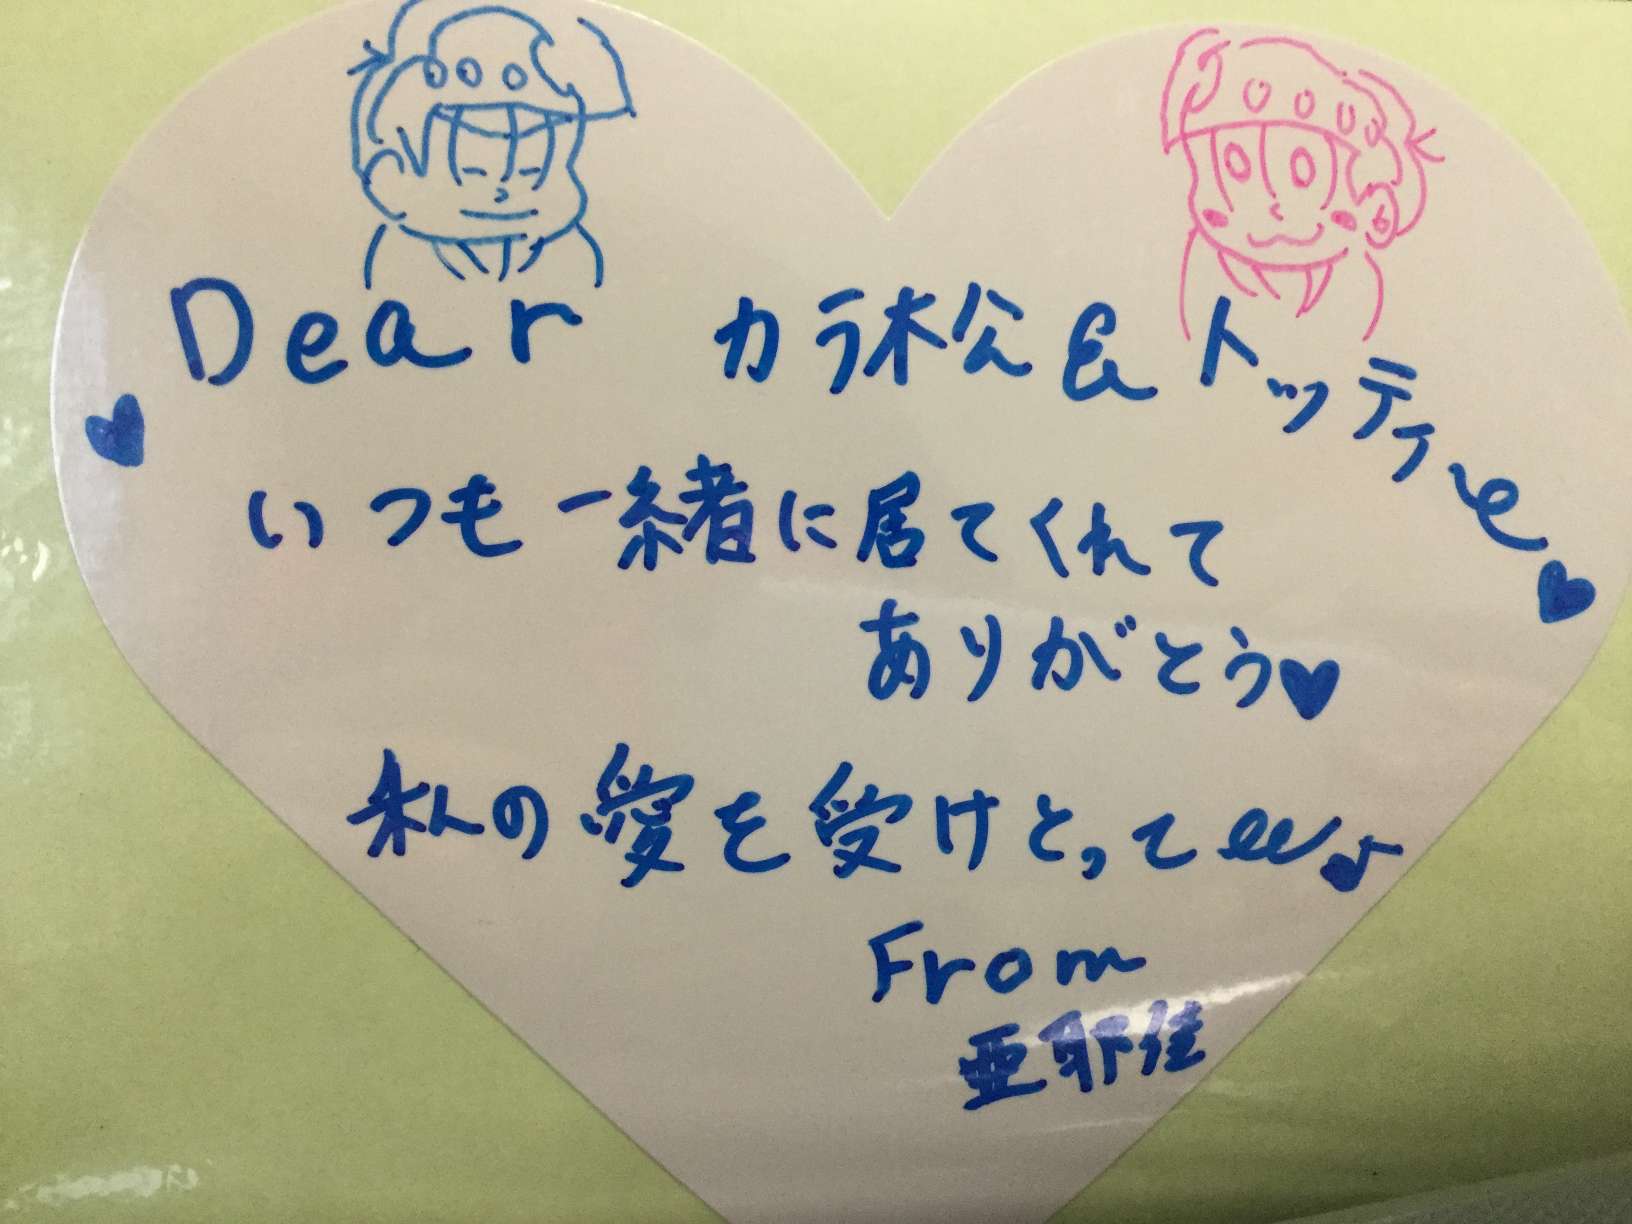 Dear カラ松&トッティ
いつも一緒に居てくれて
ありがとう♥
私の愛を受けとって♪
From
亜耶佳